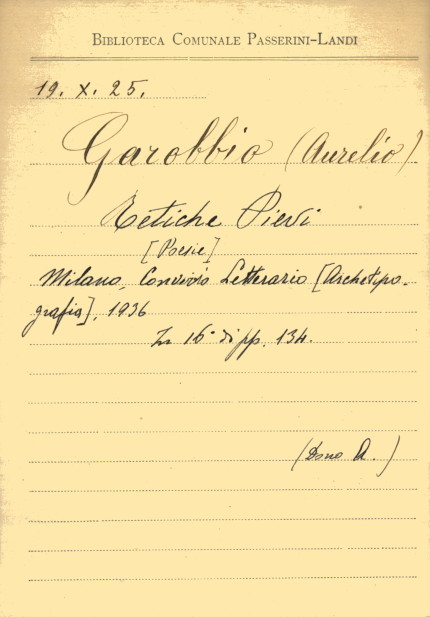 BIBLIOTECA COMUNALE PASSERINI-LANDI
19. X. 25.
Garobbio (Aurelio)
Retiche Pievi
[Poesie]
Milano, Convivio Letterario [Archetipo-
grafia], 1936
In 16° di pp. 134.
(Dono A.)